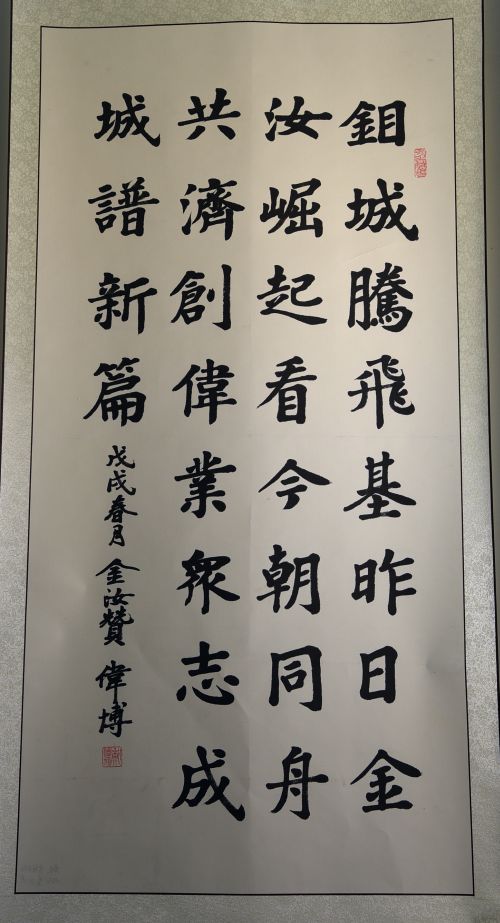 鉬城騰飛基昨日金
汝崛起看今朝同舟
共濟創偉業衆志成
城譜新篇
戊戌春月 金汝贊 偉博